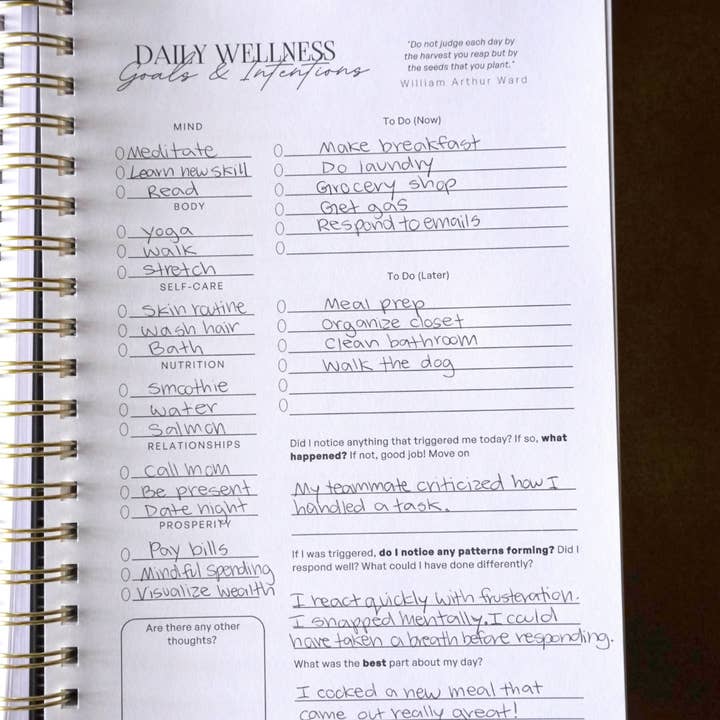 DAILY WELLNESS
Goals & Intentions
"Do not judge each day by
the harvest you reap but by
the seeds that you plant."
William Arthur Ward
MIND
Meditate
Learn new skill
Read
BODY
yoga
walk
stretch
SELF-CARE
Skin routine
wash hair
Bath
NUTRITION
smoothie
water
Salmon
RELATIONSHIPS
Call mom
Be present
Date night
PROSPERITY
Pay bills
Mindful spending
Visualize wealth
Are there any other
thoughts?
To Do (Now)
Make breakfast
Do laundry
Grocery shop
Get gas
Respond to emails
To Do (Later)
Meal prep
organize closet
Clean bathroom
Walk the dog
Did I notice anything that triggered me today? If so, what
happened? If not, good job! Move on
My teammate criticized how I
handled a task.
If I was triggered, do I notice any patterns forming? Did I
respond well? What could I have done differently?
I react quickly with frusteration.
I snapped mentally. I could
have taken a breath before responding.
What was the best part about my day?
I cocked a new meal that
came out really great!